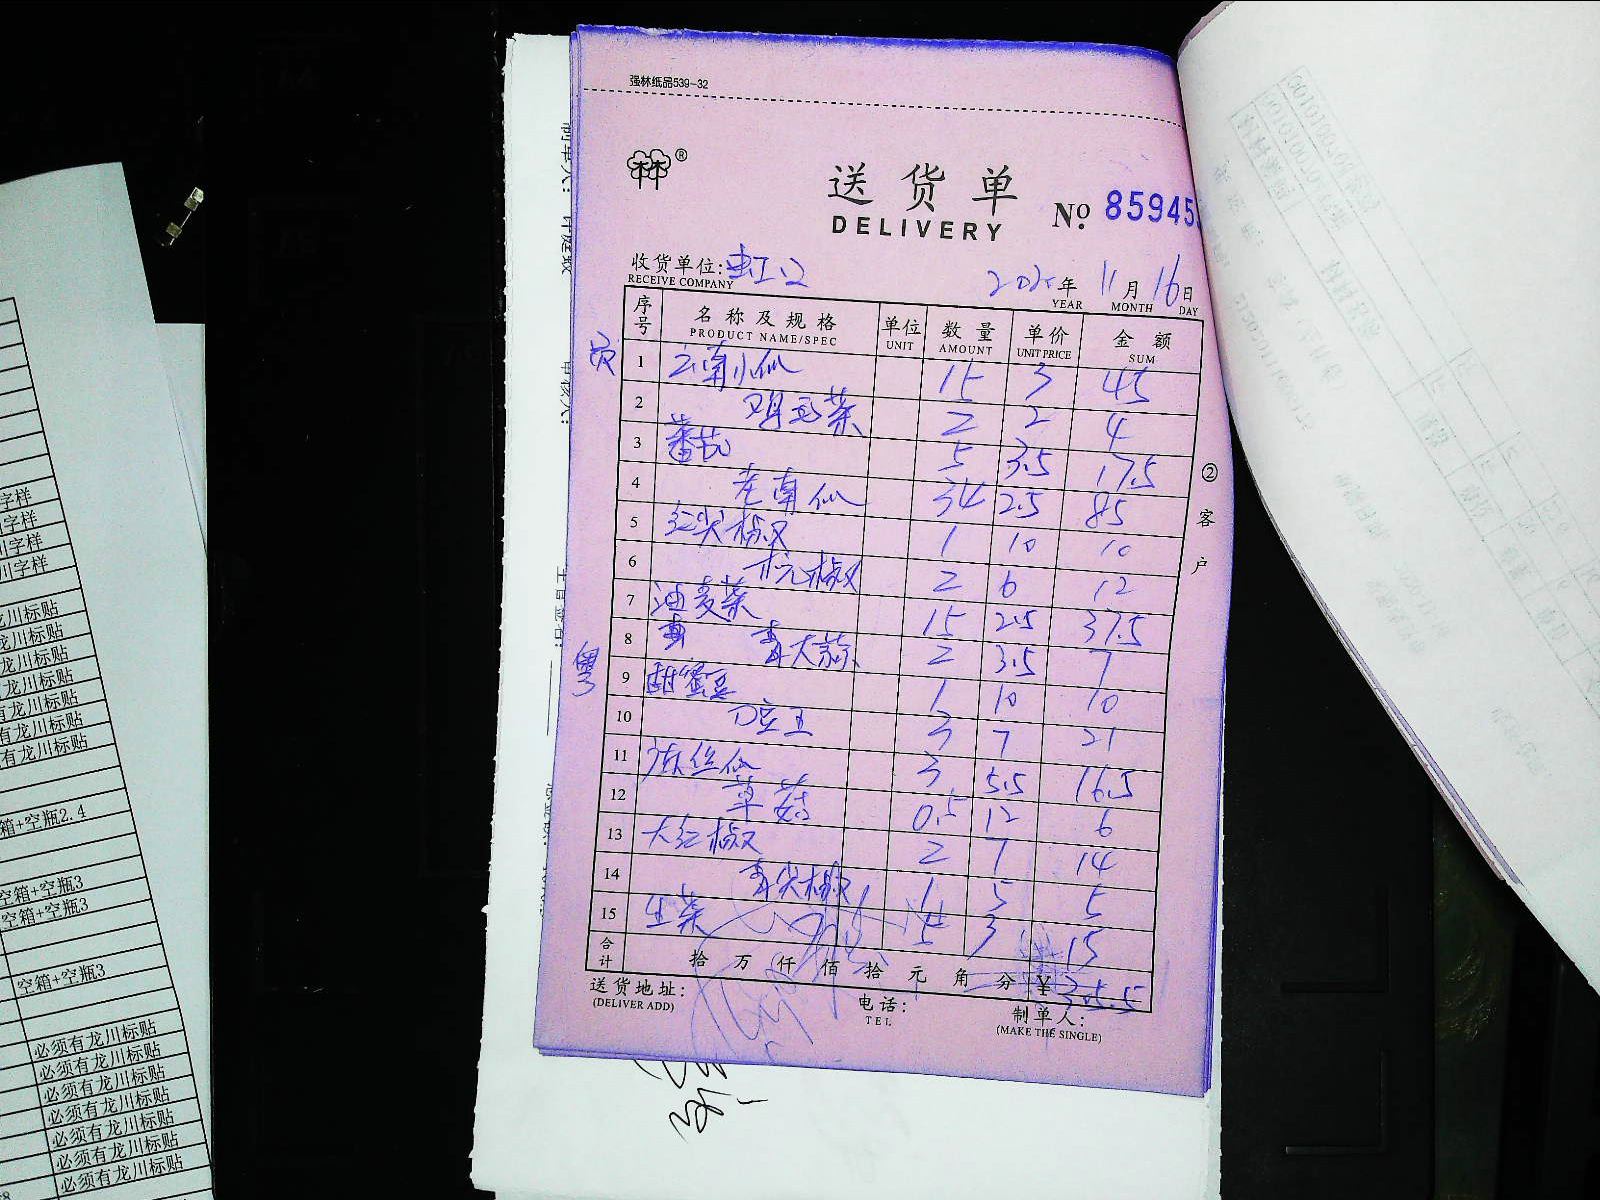 强林纸品539-32
林林 ®
送货单
DELIVERY
№ 85945
收货单位: 虹口 2025年 11月 16日
RECEIVE COMPANY YEAR MONTH DAY
序号 名称及规格 单位 数量 单价 金额
PRODUCT NAME/SPEC UNIT AMOUNT UNIT PRICE SUM
1 云南小瓜 15 3 45
2 鸡毛菜 2 2 4
3 番茄 5 3.5 17.5
4 老南瓜 34 2.5 85
5 红尖椒 1 10 10
6 杭椒 2 6 12
7 油麦菜 15 2.5 37.5
8 青大蒜 2 3.5 7
粤
9 甜蜜豆 1 10 10
10 刀豆王 3 7 21
11 冻丝瓜 3 5.5 16.5
12 草菇 0.5 12 6
13 大红椒 2 7 14
14 青尖椒 1 5 5
15 生菜 5 3 15
合计 拾 万 仟 佰 拾 元 角 分 ¥ 305.5
送货地址: 电话: 制单人:
(DELIVER ADD) TEL (MAKE THE SINGLE)
②客户
字样
字样
川字样
川字样
龙川标贴
龙川标贴
龙川标贴
有龙川标贴
有龙川标贴
有龙川标贴
有龙川标贴
箱+空瓶2.4
空箱+空瓶3
空箱+空瓶3
空箱+空瓶3
必须有龙川标贴
必须有龙川标贴
必须有龙川标贴
必须有龙川标贴
必须有龙川标贴
必须有龙川标贴
必须有龙川标贴